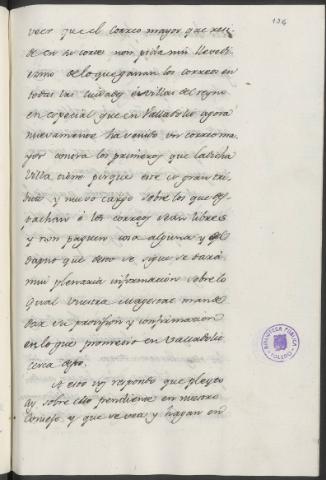 136
veer que el correo mayor que resi-
de en su corte non pida nin lleve el
diezmo de lo que ganan los correos en
todas las ciudades é villas del reyno
en especial que en Valladolid agora
nuevamente ha venido un correo ma-
yor contra los primeros que la dicha
Villa tiene porque este es gran tri-
buto y nuevo cargo sobre los que des-
pachan é los correos sean libres
y non paguen cosa alguna y del
dapño que desto se sigue se dará
mui plenaria informacion sobre lo
qual vuestra Magestad mande
dar su provision y confirmacion
en lo que prometió en Valladolid
cerca desto.
A esto vos respondo que pleyto
ay sobre ello pendiente en nuestro
Consejo y que se vea y hagan en
BIBLIOTECA PUBLICA
TOLEDO